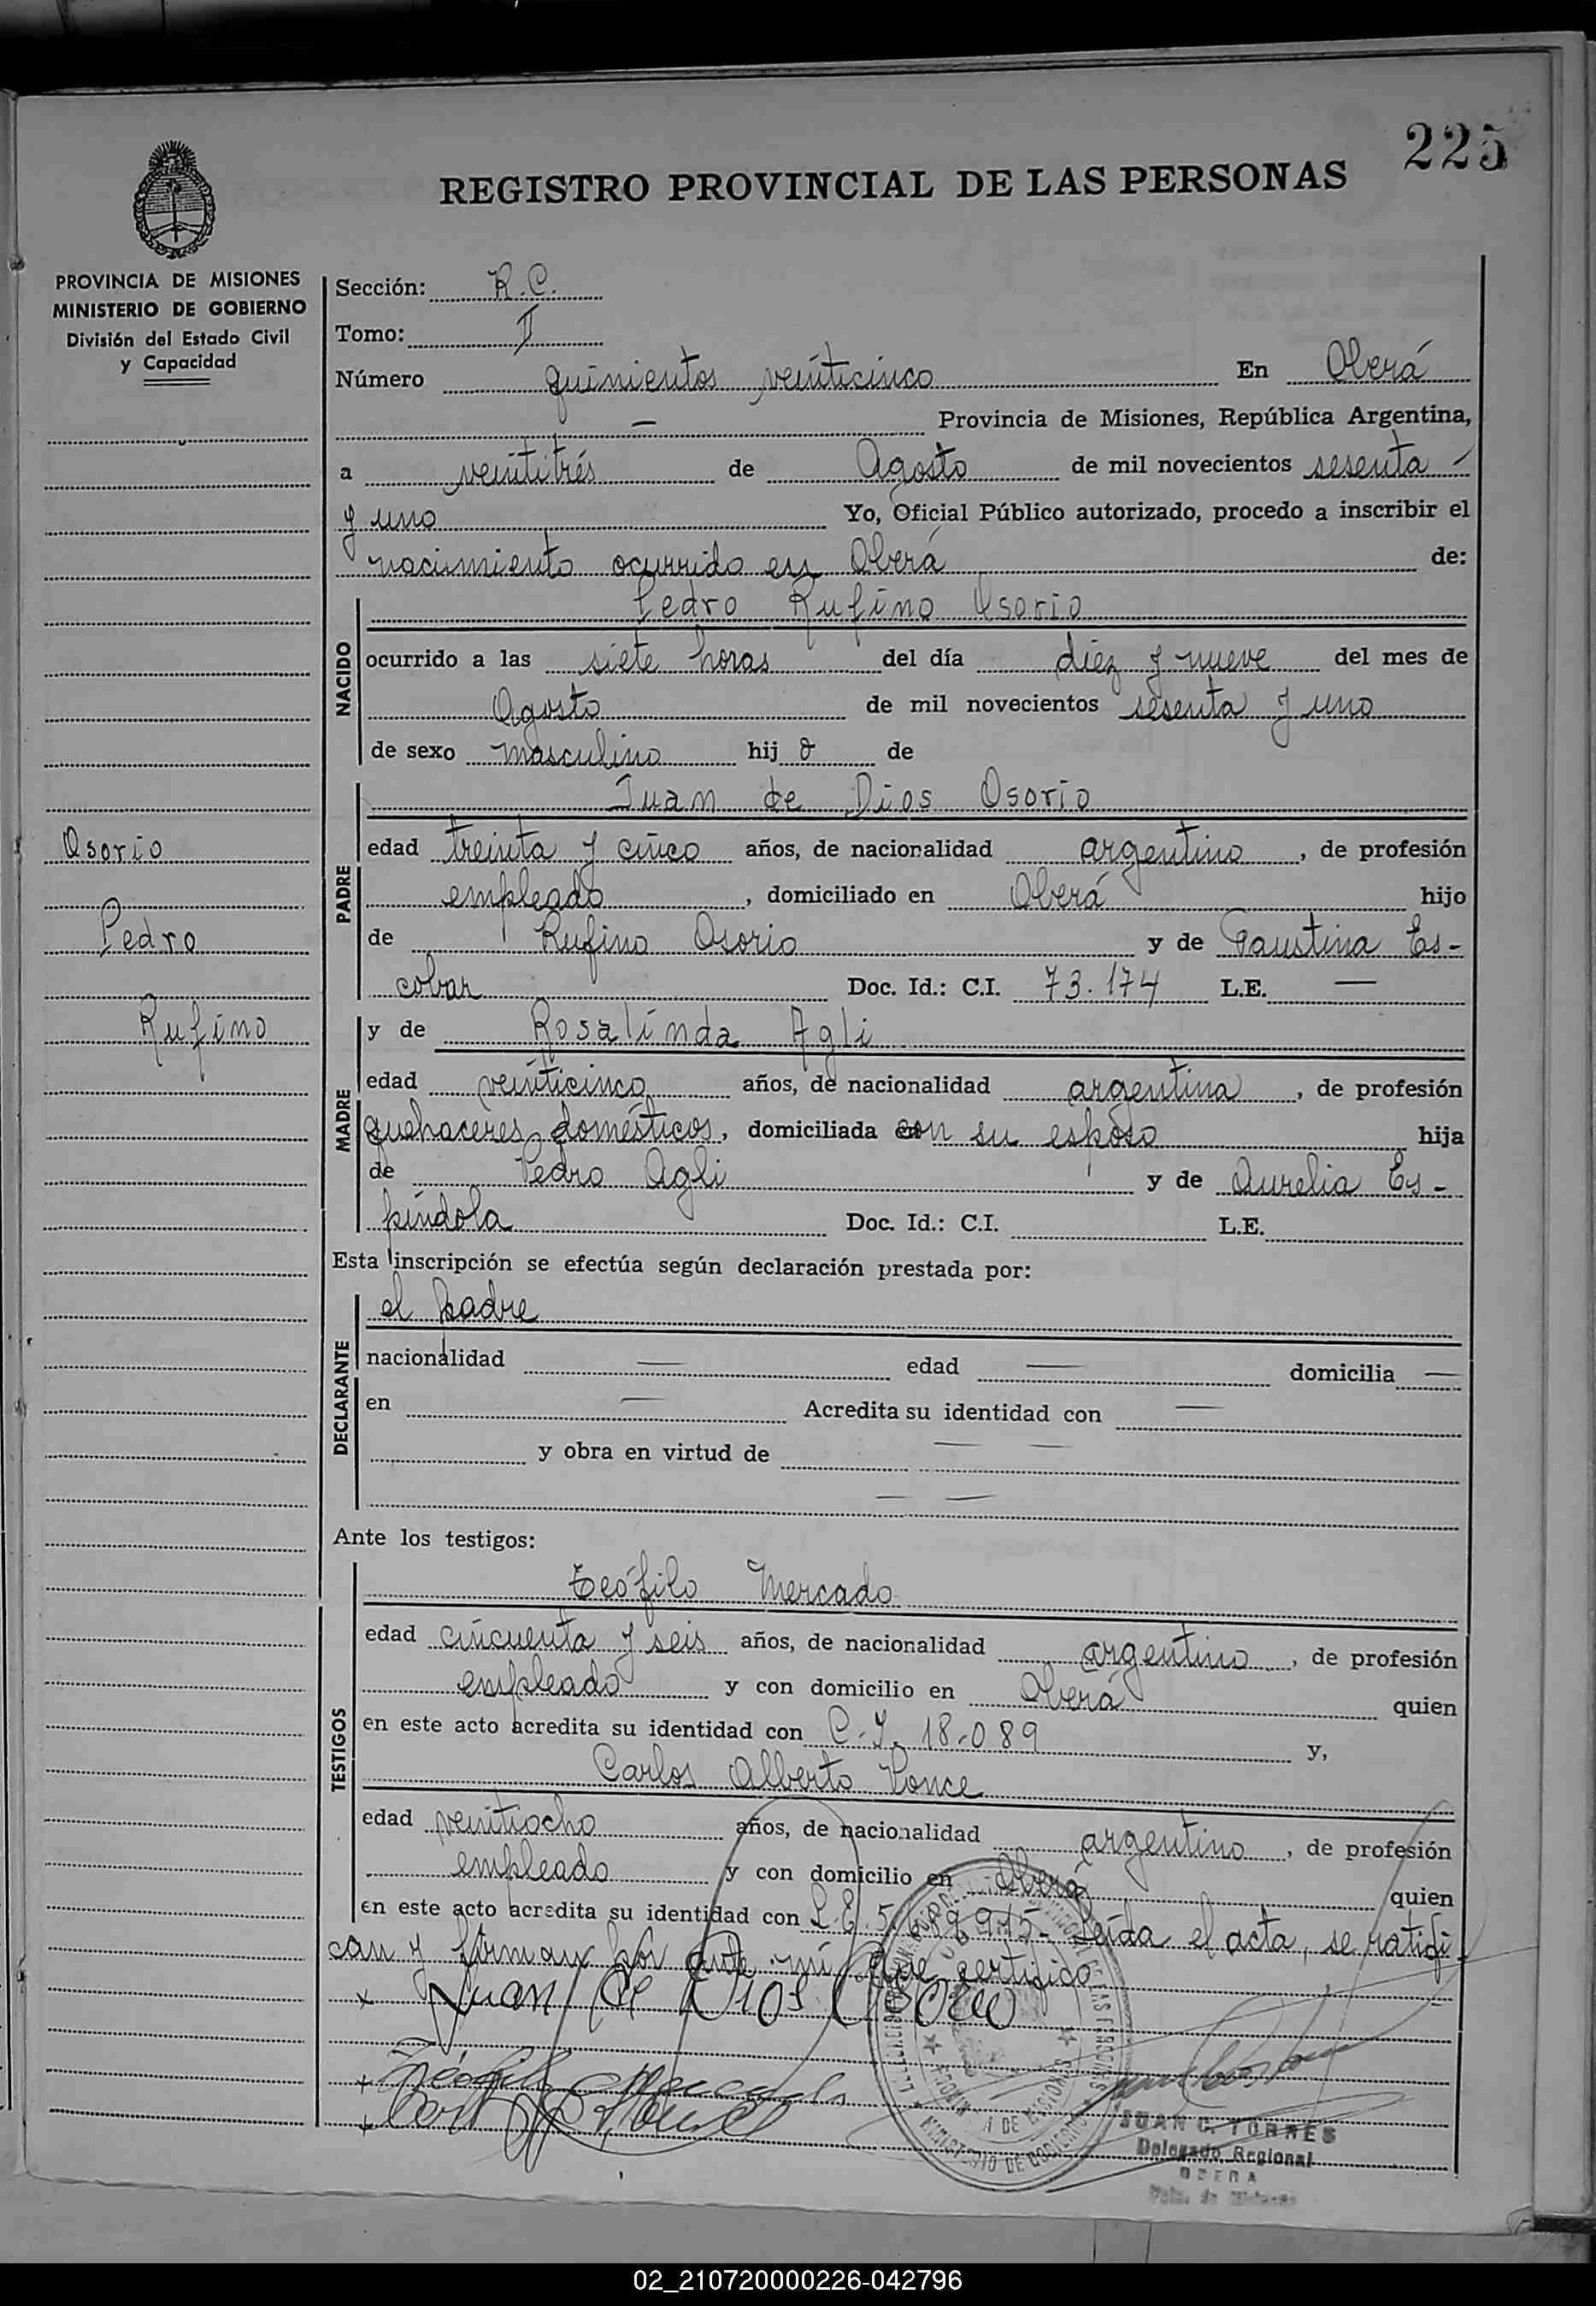 225
REGISTRO PROVINCIAL DE LAS PERSONAS
PROVINCIA DE MISIONES
MINISTERIO DE GOBIERNO
División del Estado Civil
y Capacidad
Sección: R.C.
Tomo: II
Número quinientos veinticinco En Oberá
— Provincia de Misiones, República Argentina,
a veintitrés de Agosto de mil novecientos sesenta –
y uno Yo, Oficial Público autorizado, procedo a inscribir el
nacimiento ocurrido en Oberá de:
NACIDO
Pedro Rufino Osorio
ocurrido a las siete horas del día diez y nueve del mes de
Agosto de mil novecientos sesenta y uno
de sexo masculino hij o de
PADRE
Juan de Dios Osorio
Osorio
edad treinta y cinco años, de nacionalidad argentino, de profesión
empleado, domiciliado en Oberá hijo
Pedro
de Rufino Osorio y de Faustina Es-
cobar Doc. Id.: C.I. 73.174 L.E. —
Rufino
MADRE
y de Rosalinda Agli
edad veinticinco años, de nacionalidad argentina, de profesión
quehaceres domésticos, domiciliada con su esposo hija
de Pedro Agli y de Aurelia Es-
píndola Doc. Id.: C.I. L.E.
Esta inscripción se efectúa según declaración prestada por:
DECLARANTE
el padre
nacionalidad — edad — domicilia —
en — Acredita su identidad con —
y obra en virtud de — —
— —
Ante los testigos:
TESTIGOS
Teófilo Mercado
edad cincuenta y seis años, de nacionalidad argentino, de profesión
empleado y con domicilio en Oberá quien
en este acto acredita su identidad con C.I. 18.089 y,
Carlos Alberto Ponce
edad veintiocho años, de nacionalidad argentino, de profesión
empleado y con domicilio en Oberá quien
en este acto acredita su identidad con L.E. Leída el acta, se ratifi-
can y firman por ante mí que certifico
x Juan de Dios Osorio
x Teófilo Mercado
x
JUAN C. TORRES
Delegado Regional
OBERA
02_210720000226-042796